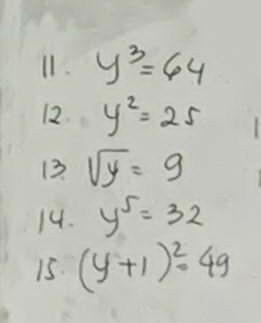 11. y³=64
12. y²=25
13. √y = 9
14. y⁵=32
15. (y+1)²=49